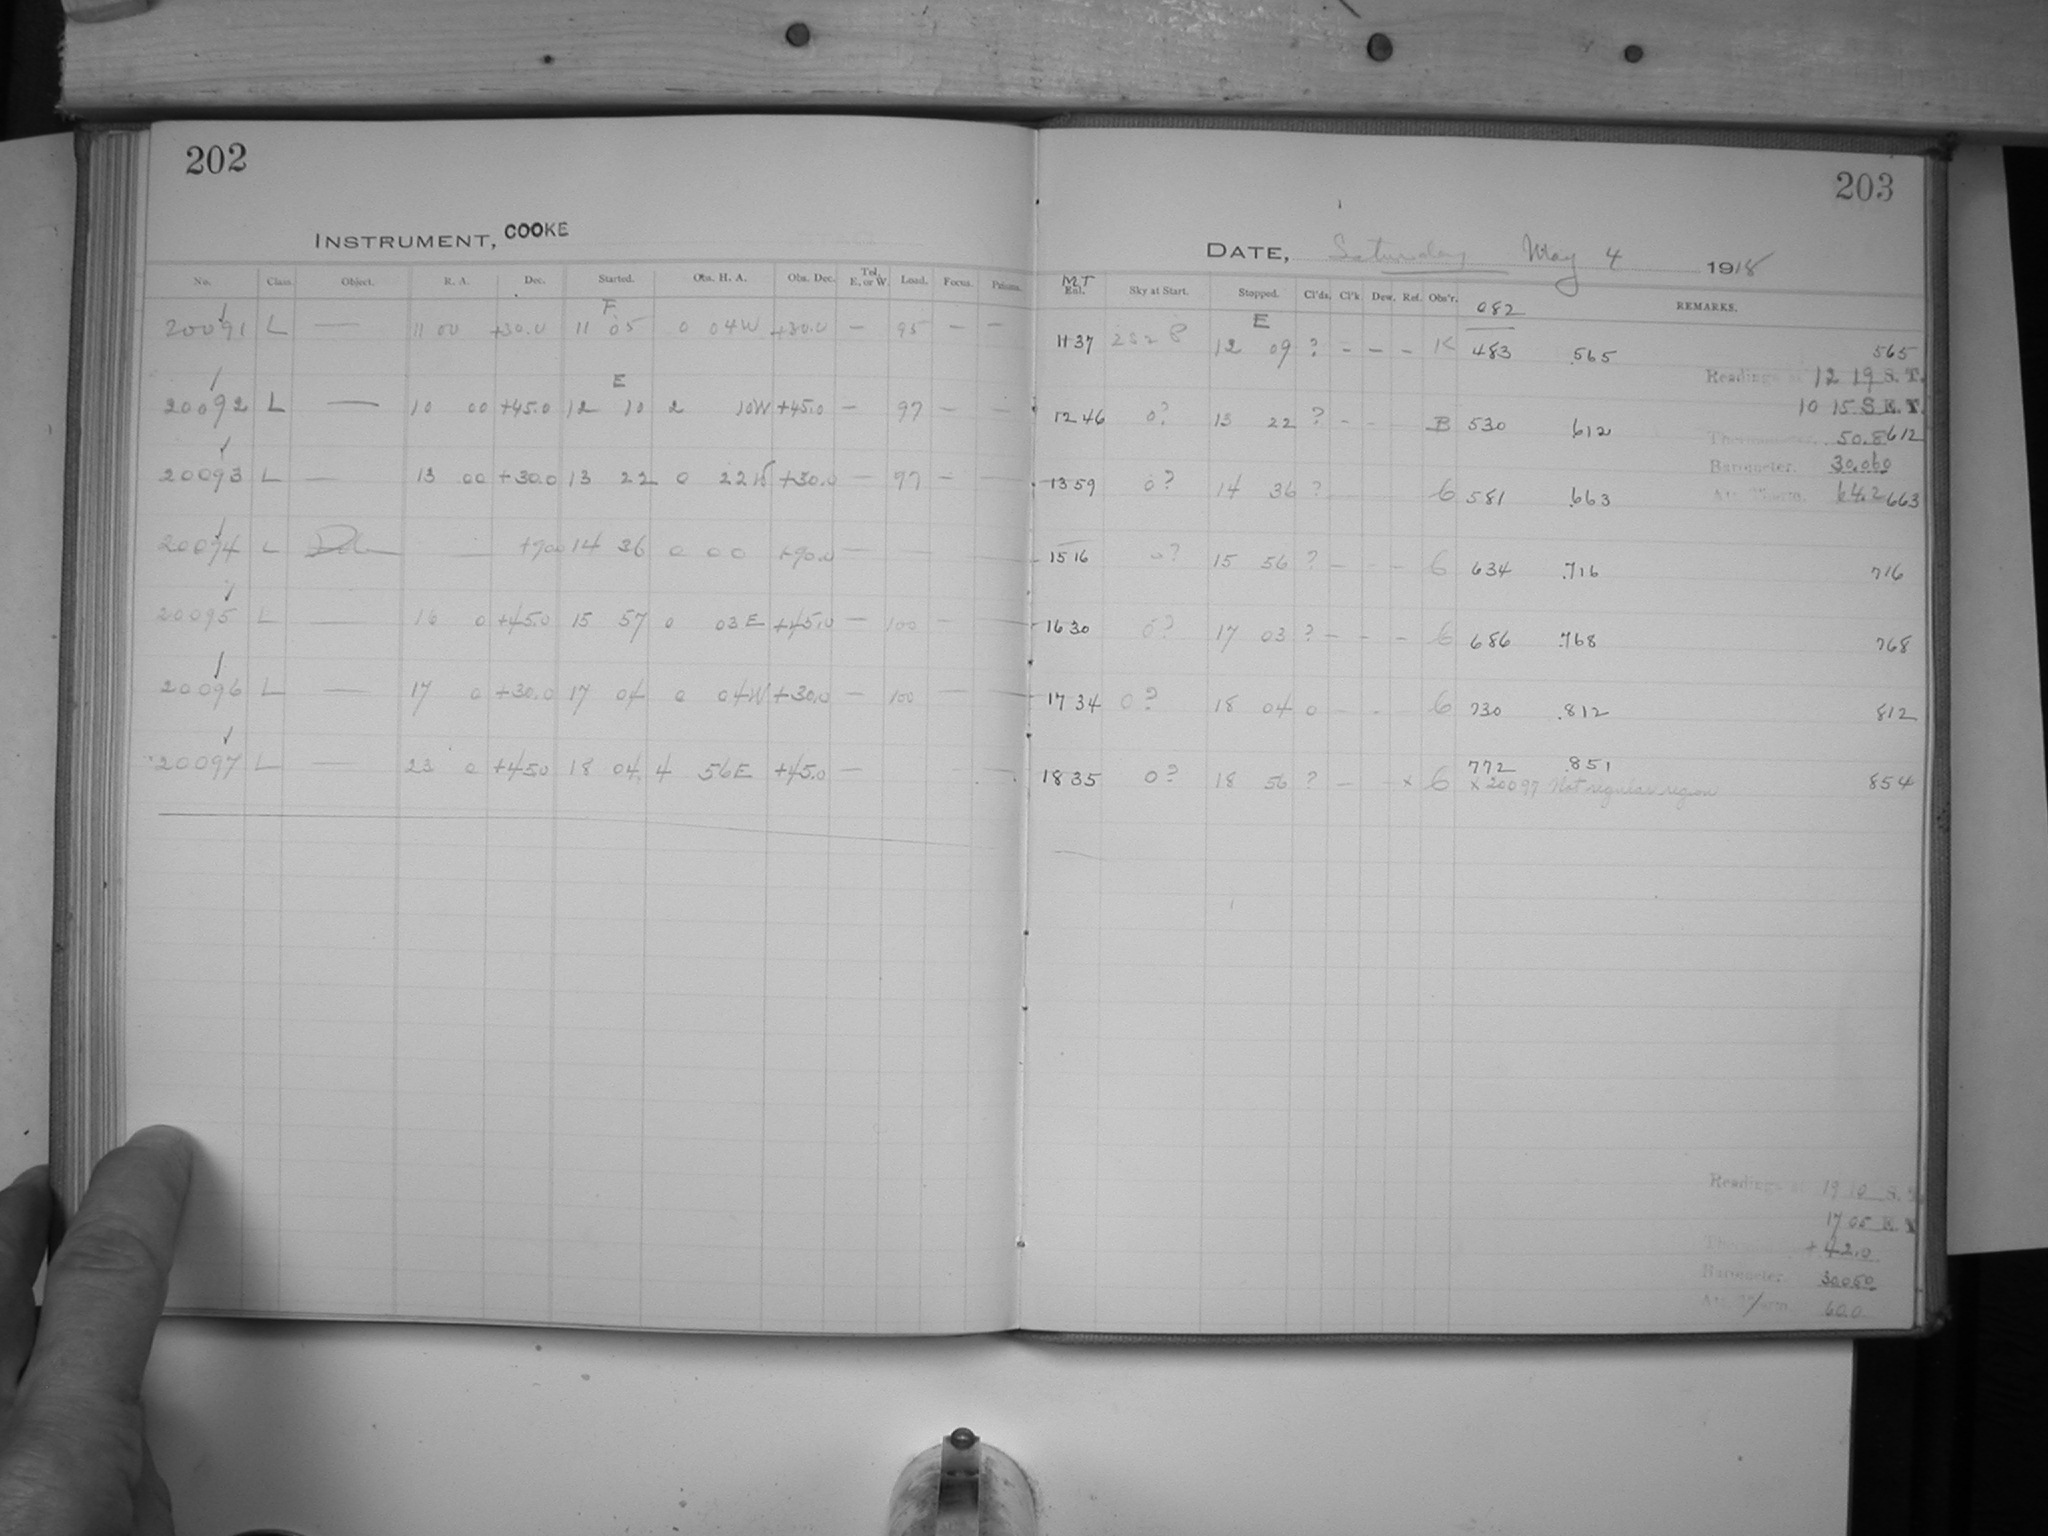 202
INSTRUMENT, COOKE
No. Class. Object. R. A. Dec. Started. Obs. H. A. Obs. Dec. Tel. E. or W. Load. Focus. Prisms.
F
20091 L — 11 00 +30.0 11 05 0 04W +30.0 — 95 – –
E
20092 L — 10 00 +45.0 12 10 2 10W +45.0 — 97 – –
20093 L — 13 00 +30.0 13 22 0 22W +30.0 — 97 –
20094 L — +90.0 14 36 0 00 +90.0 —
20095 L — 16 0 +45.0 15 57 0 03E +45.0 — 100 –
20096 L — 17 0 +30.0 17 04 0 04W +30.0 — 100
20097 L — 23 0 +45.0 18 04 4 56E +45.0 —
203
DATE, Saturday May 4 1918
MT
Sky at Start. Stopped. Cl'ds. Cl'k. Dew. Ref. Obs'r. REMARKS.
082
E
11 37 12 09 ? – – – K 483 .565 565
Readings at 12 19 S. T.
10 15 S E. T.
12 46 0? 13 22 ? – – B 530 .612 612
50.8
Barometer. 30.060
13 59 0? 14 36 ? 6 581 .663 663
64.2
15 16 0? 15 56 ? – – – 6 634 .716 716
16 30 0? 17 03 ? – – – 6 686 .768 768
17 34 0? 18 04 0 – – 6 730 .812 812
18 35 0? 18 56 ? – – x 6 772 .851 854
x 20097 Not regular region
Readings at 19 10 S. T.
17 05 E. T
+42.0
Barometer. 30.050
60.0